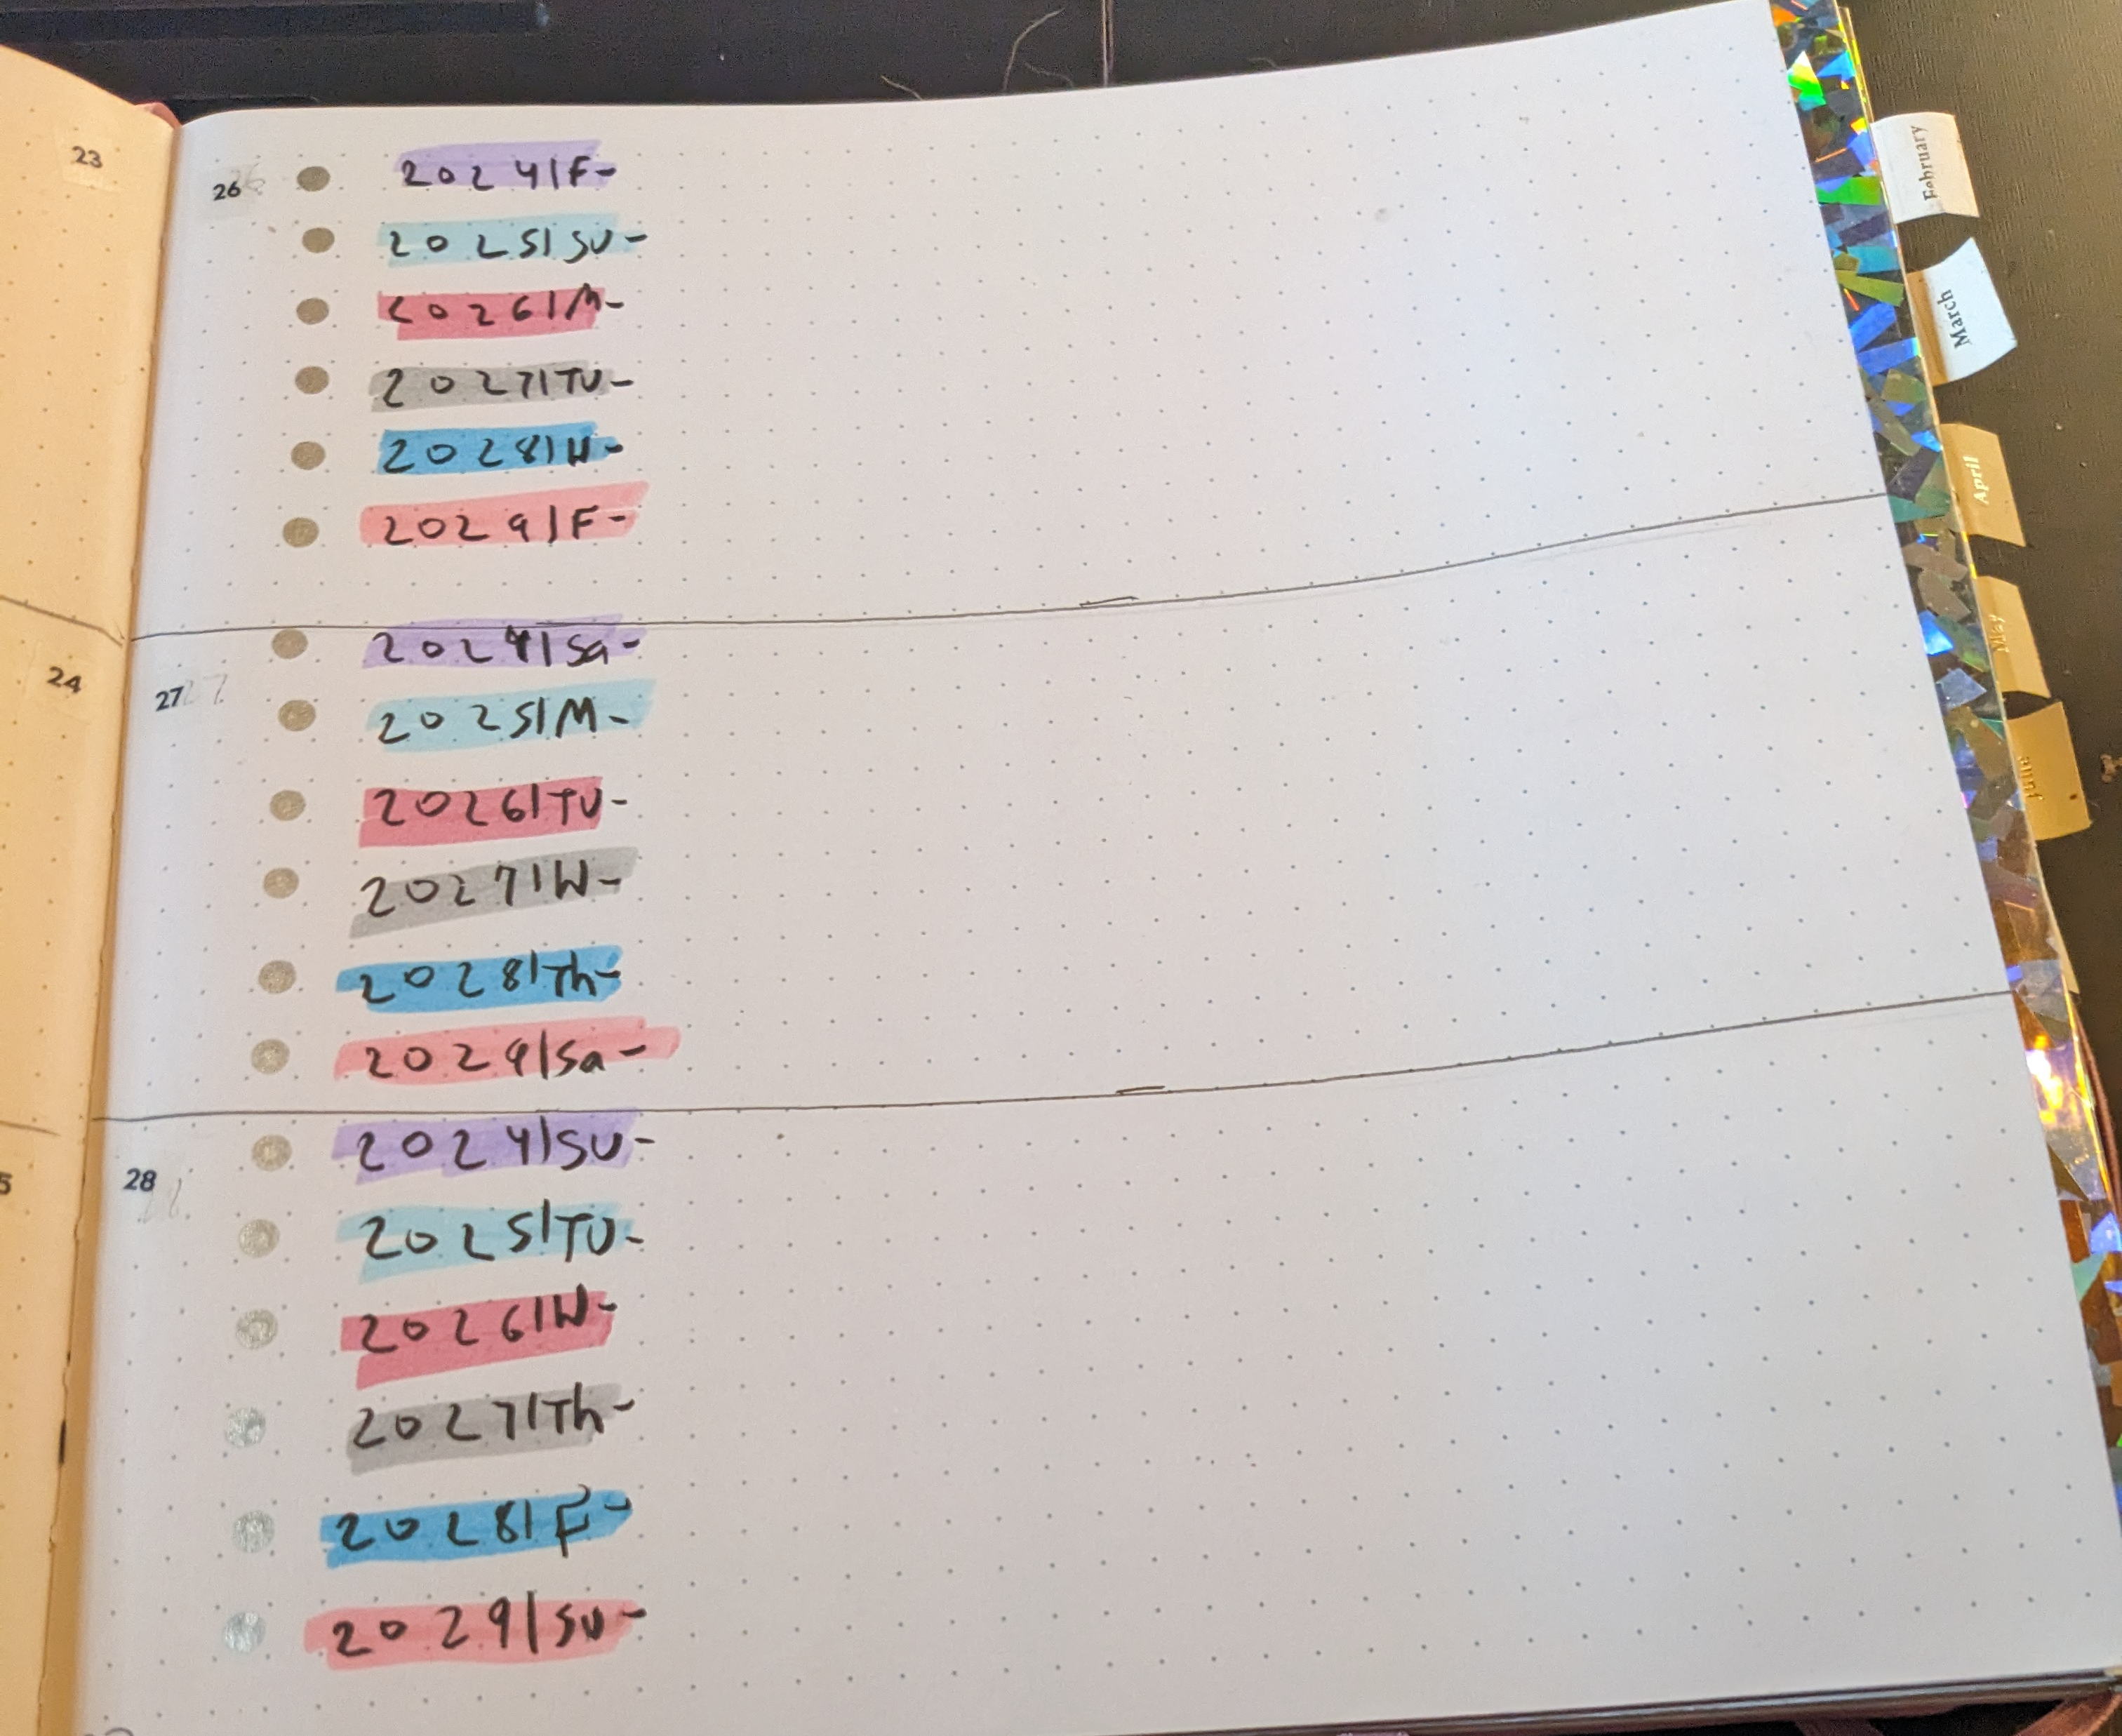 23
26
2024|F-
2025|SU-
2026|M-
2027|TU-
2028|W-
2029|F-
24
27
2024|Sa-
2025|M-
2026|TU-
2027|W-
2028|Th-
2029|Sa-
5
28
2024|SU-
2025|TU-
2026|W-
2027|Th-
2028|F-
2029|SU-
February
March
April
May
June